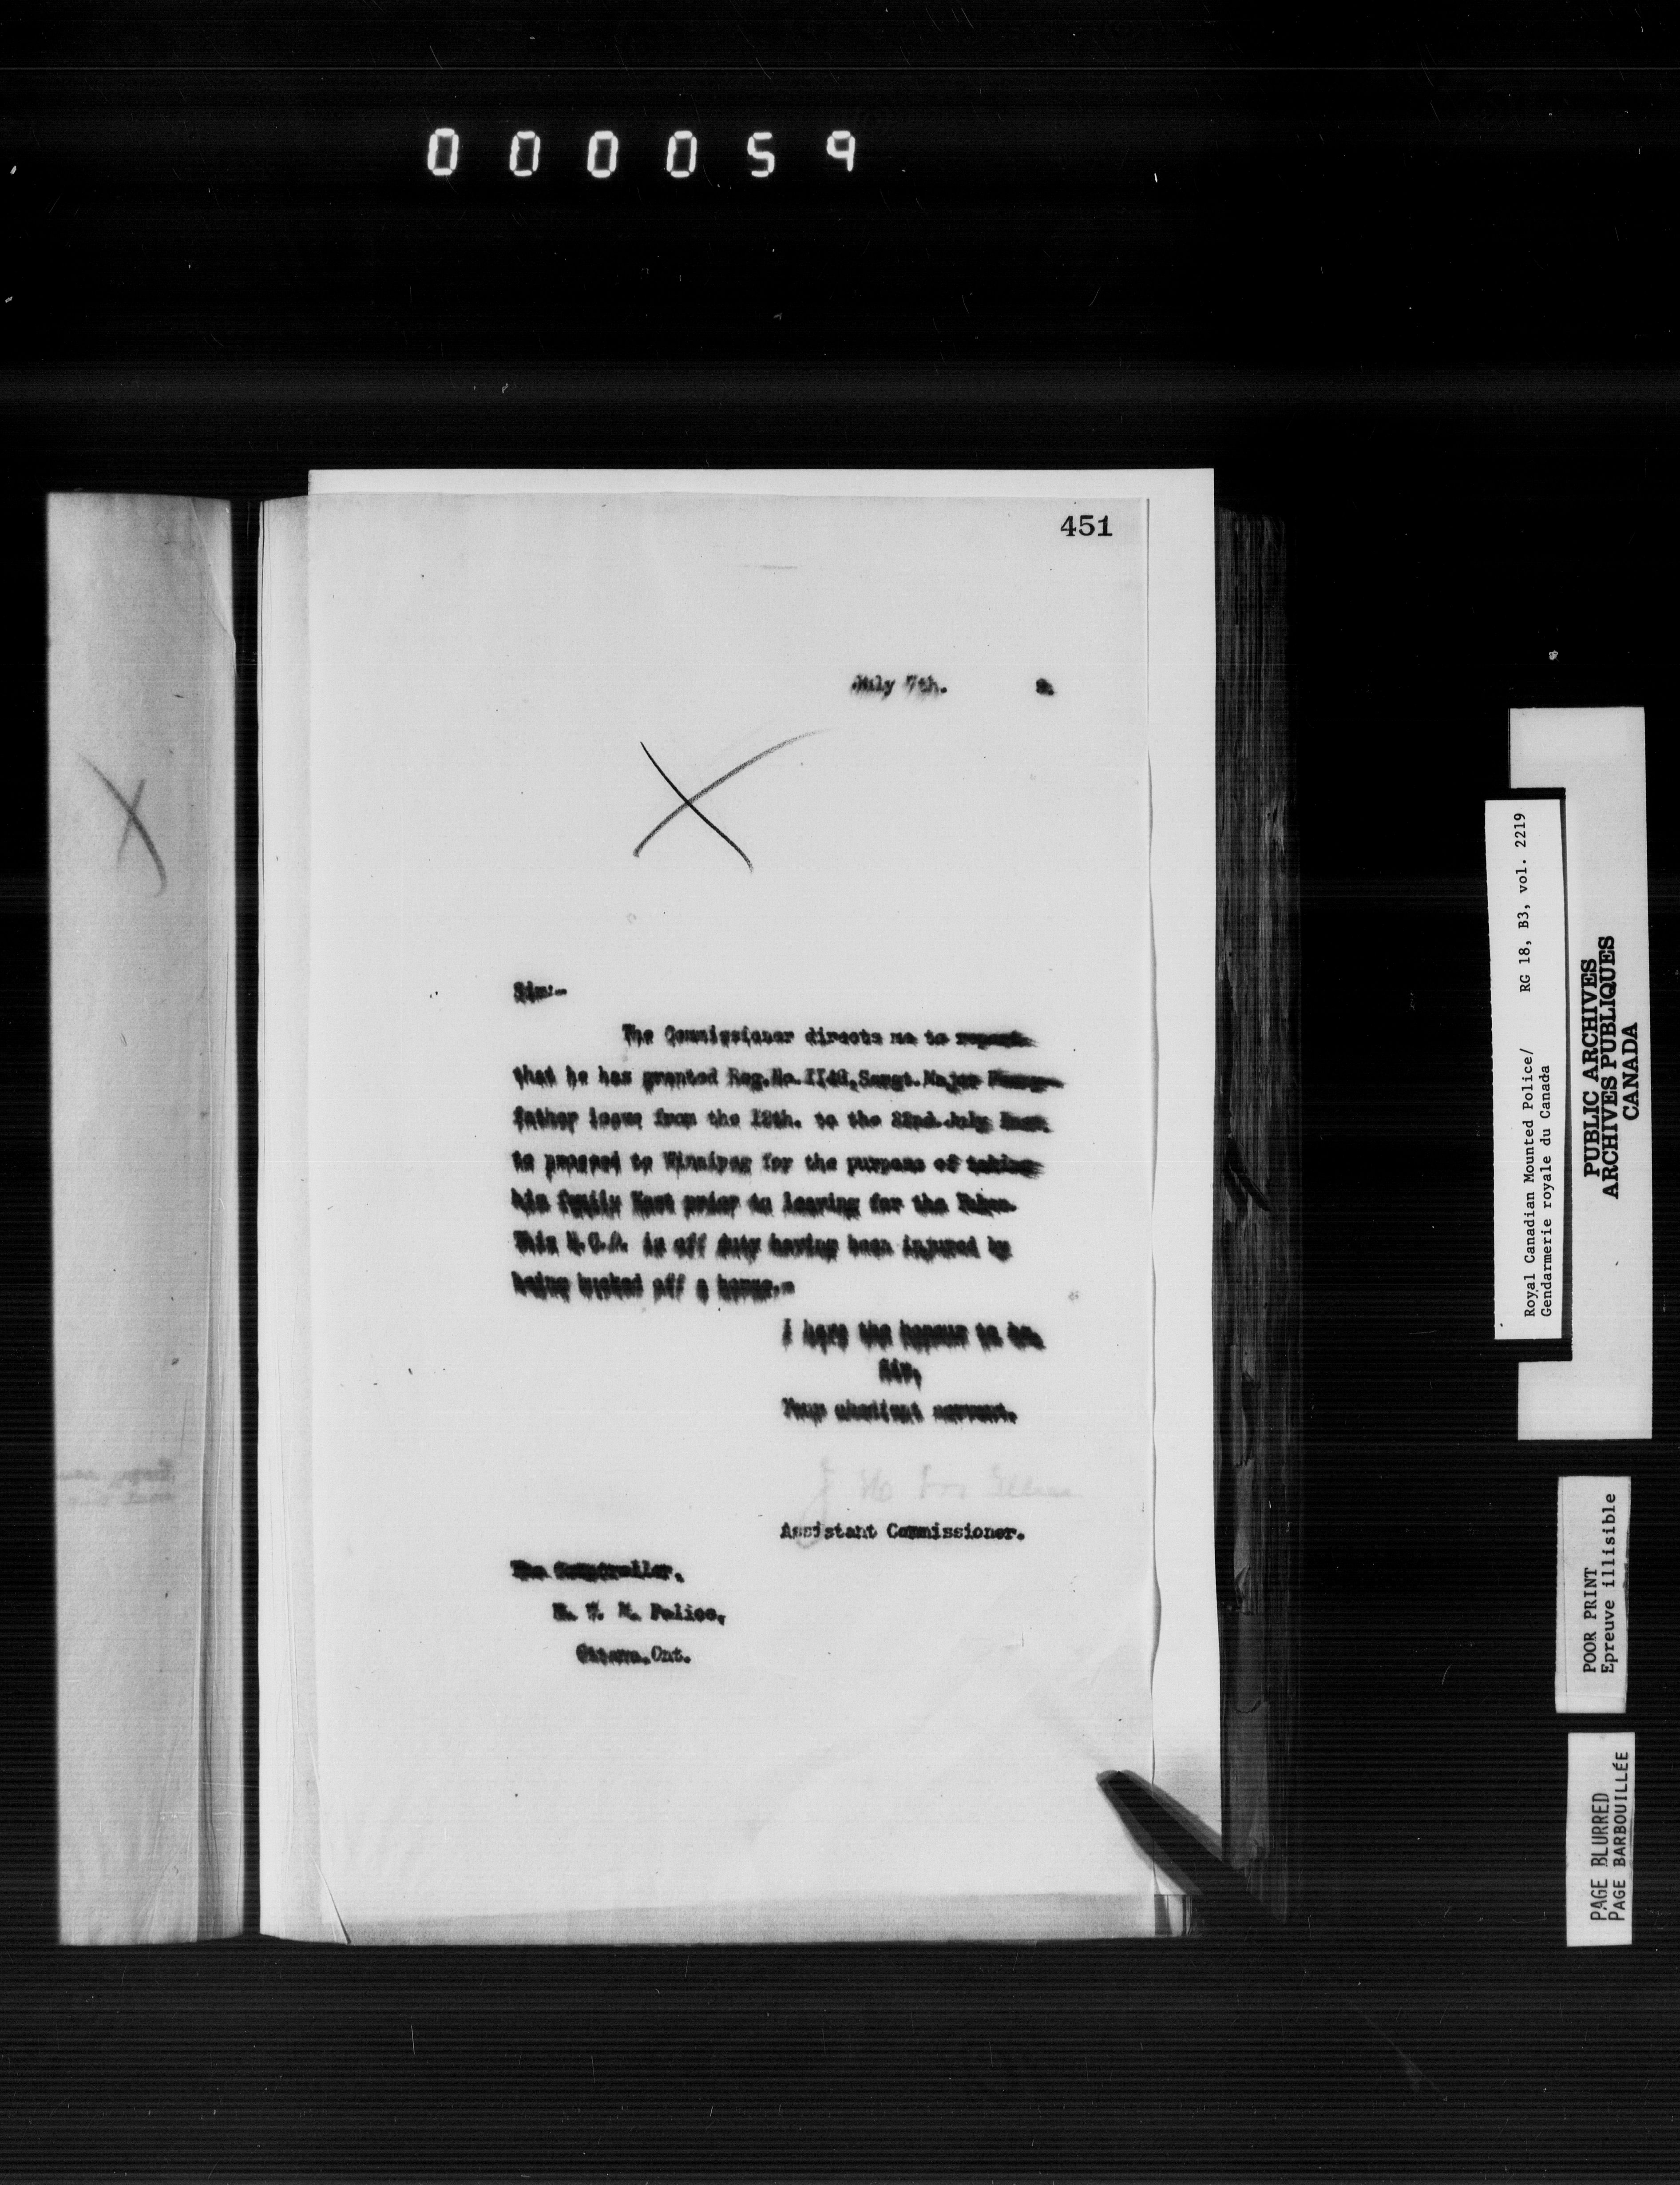 000059
451
July 7th. 2.
Sir:-
The Commissioner directs me to report
that he has granted Reg.No. Sergt.Major
father leave from the 12th. to the 22nd.July
to proceed to Winnipeg for the purpose of taking
his family East prior to leaving for the Yukon.
This N.C.O. is off duty having been injured by
being bucked off a horse.-
I have the honour to be,
Sir,
Your obedient servant.
Assistant Commissioner.
The Comptroller.
N. W. M. Police,
Ottawa.Ont.
Royal Canadian Mounted Police/ RG 18, B3, vol. 2219
Gendarmerie royale du Canada
PUBLIC ARCHIVES
ARCHIVES PUBLIQUES
CANADA
POOR PRINT
Epreuve illisible
PAGE BLURRED
PAGE BARBOUILLÉE